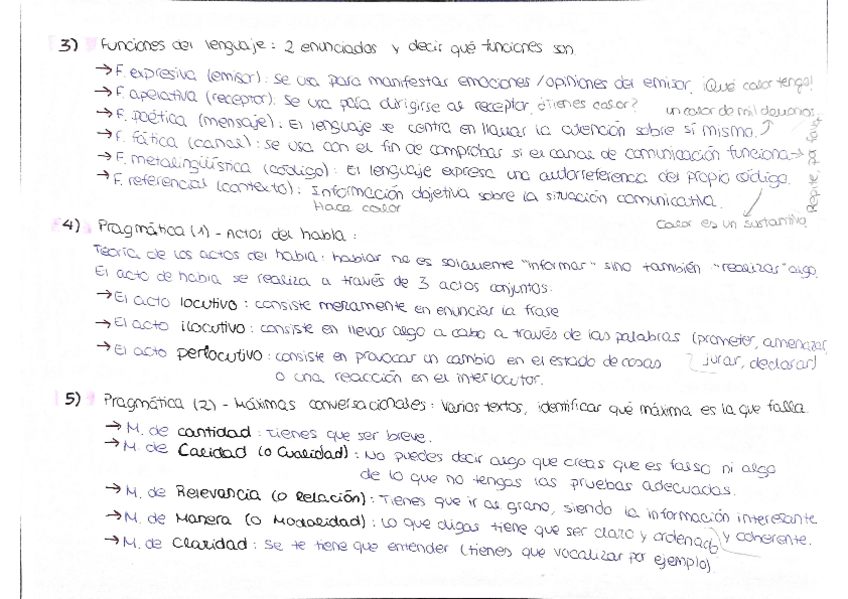 3) Funciones del lenguaje: 2 enunciados y decir qué funciones son.
→ F. expresiva (emisor): Se usa para manifestar emociones/opiniones del emisor. ¡Qué calor tengo!
→ F. apelativa (receptor): Se usa para dirigirse al receptor. ¿Tienes calor?
un calor de mil demonios
→ F. poética (mensaje): El lenguaje se centra en llamar la atención sobre sí mismo.
→ F. fática (canal): Se usa con el fin de comprobar si el canal de comunicación funciona →
Repite, por favor
→ F. metalingüística (código): El lenguaje expresa una autorreferencia del propio código.
→ F. referencial (contexto): Información objetiva sobre la situación comunicativa.
Hace calor
Calor es un sustantivo
4) Pragmática (1) - Actos del habla:
Teoría de los actos del habla: hablar no es solamente "informar" sino también "realizar" algo.
El acto de habla se realiza a través de 3 actos conjuntos:
→ El acto locutivo: consiste meramente en enunciar la frase
→ El acto ilocutivo: consiste en llevar algo a cabo a través de las palabras (prometer, amenazar,
jurar, declarar)
→ El acto perlocutivo: consiste en provocar un cambio en el estado de cosas
o una reacción en el interlocutor.
5) Pragmática (2) - Máximas conversacionales: varios textos, identificar qué máxima es la que falla.
→ M. de cantidad: tienes que ser breve.
→ M. de Calidad (o Cualidad): No puedes decir algo que creas que es falso ni algo
de lo que no tengas las pruebas adecuadas.
→ M. de Relevancia (o Relación): Tienes que ir al grano, siendo la información interesante
→ M. de Manera (o Modalidad): Lo que digas tiene que ser claro y ordenado y coherente.
→ M. de Claridad: Se te tiene que entender (tienes que vocalizar por ejemplo).